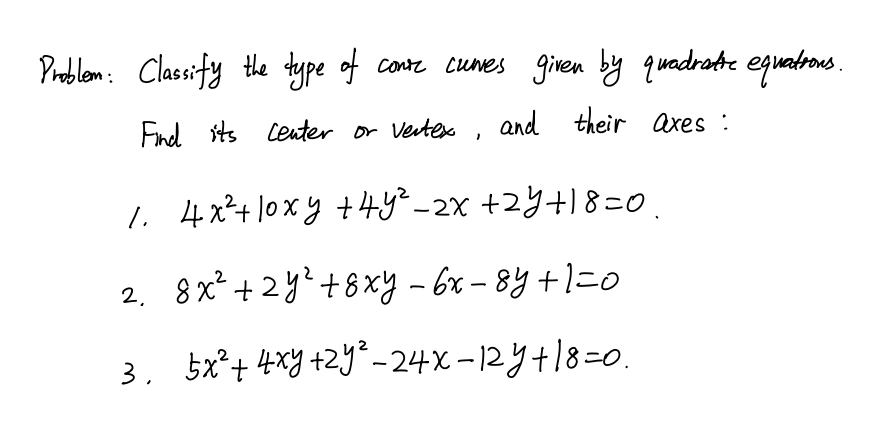 Problem: Classify the type of conic curves given by quadratic equations.
Find its center or vertex, and their axes:
1. 4x²+10xy+4y²-2x+2y+18=0.
2. 8x²+2y²+8xy-6x-8y+1=0
3. 5x²+4xy+2y²-24x-12y+18=0.